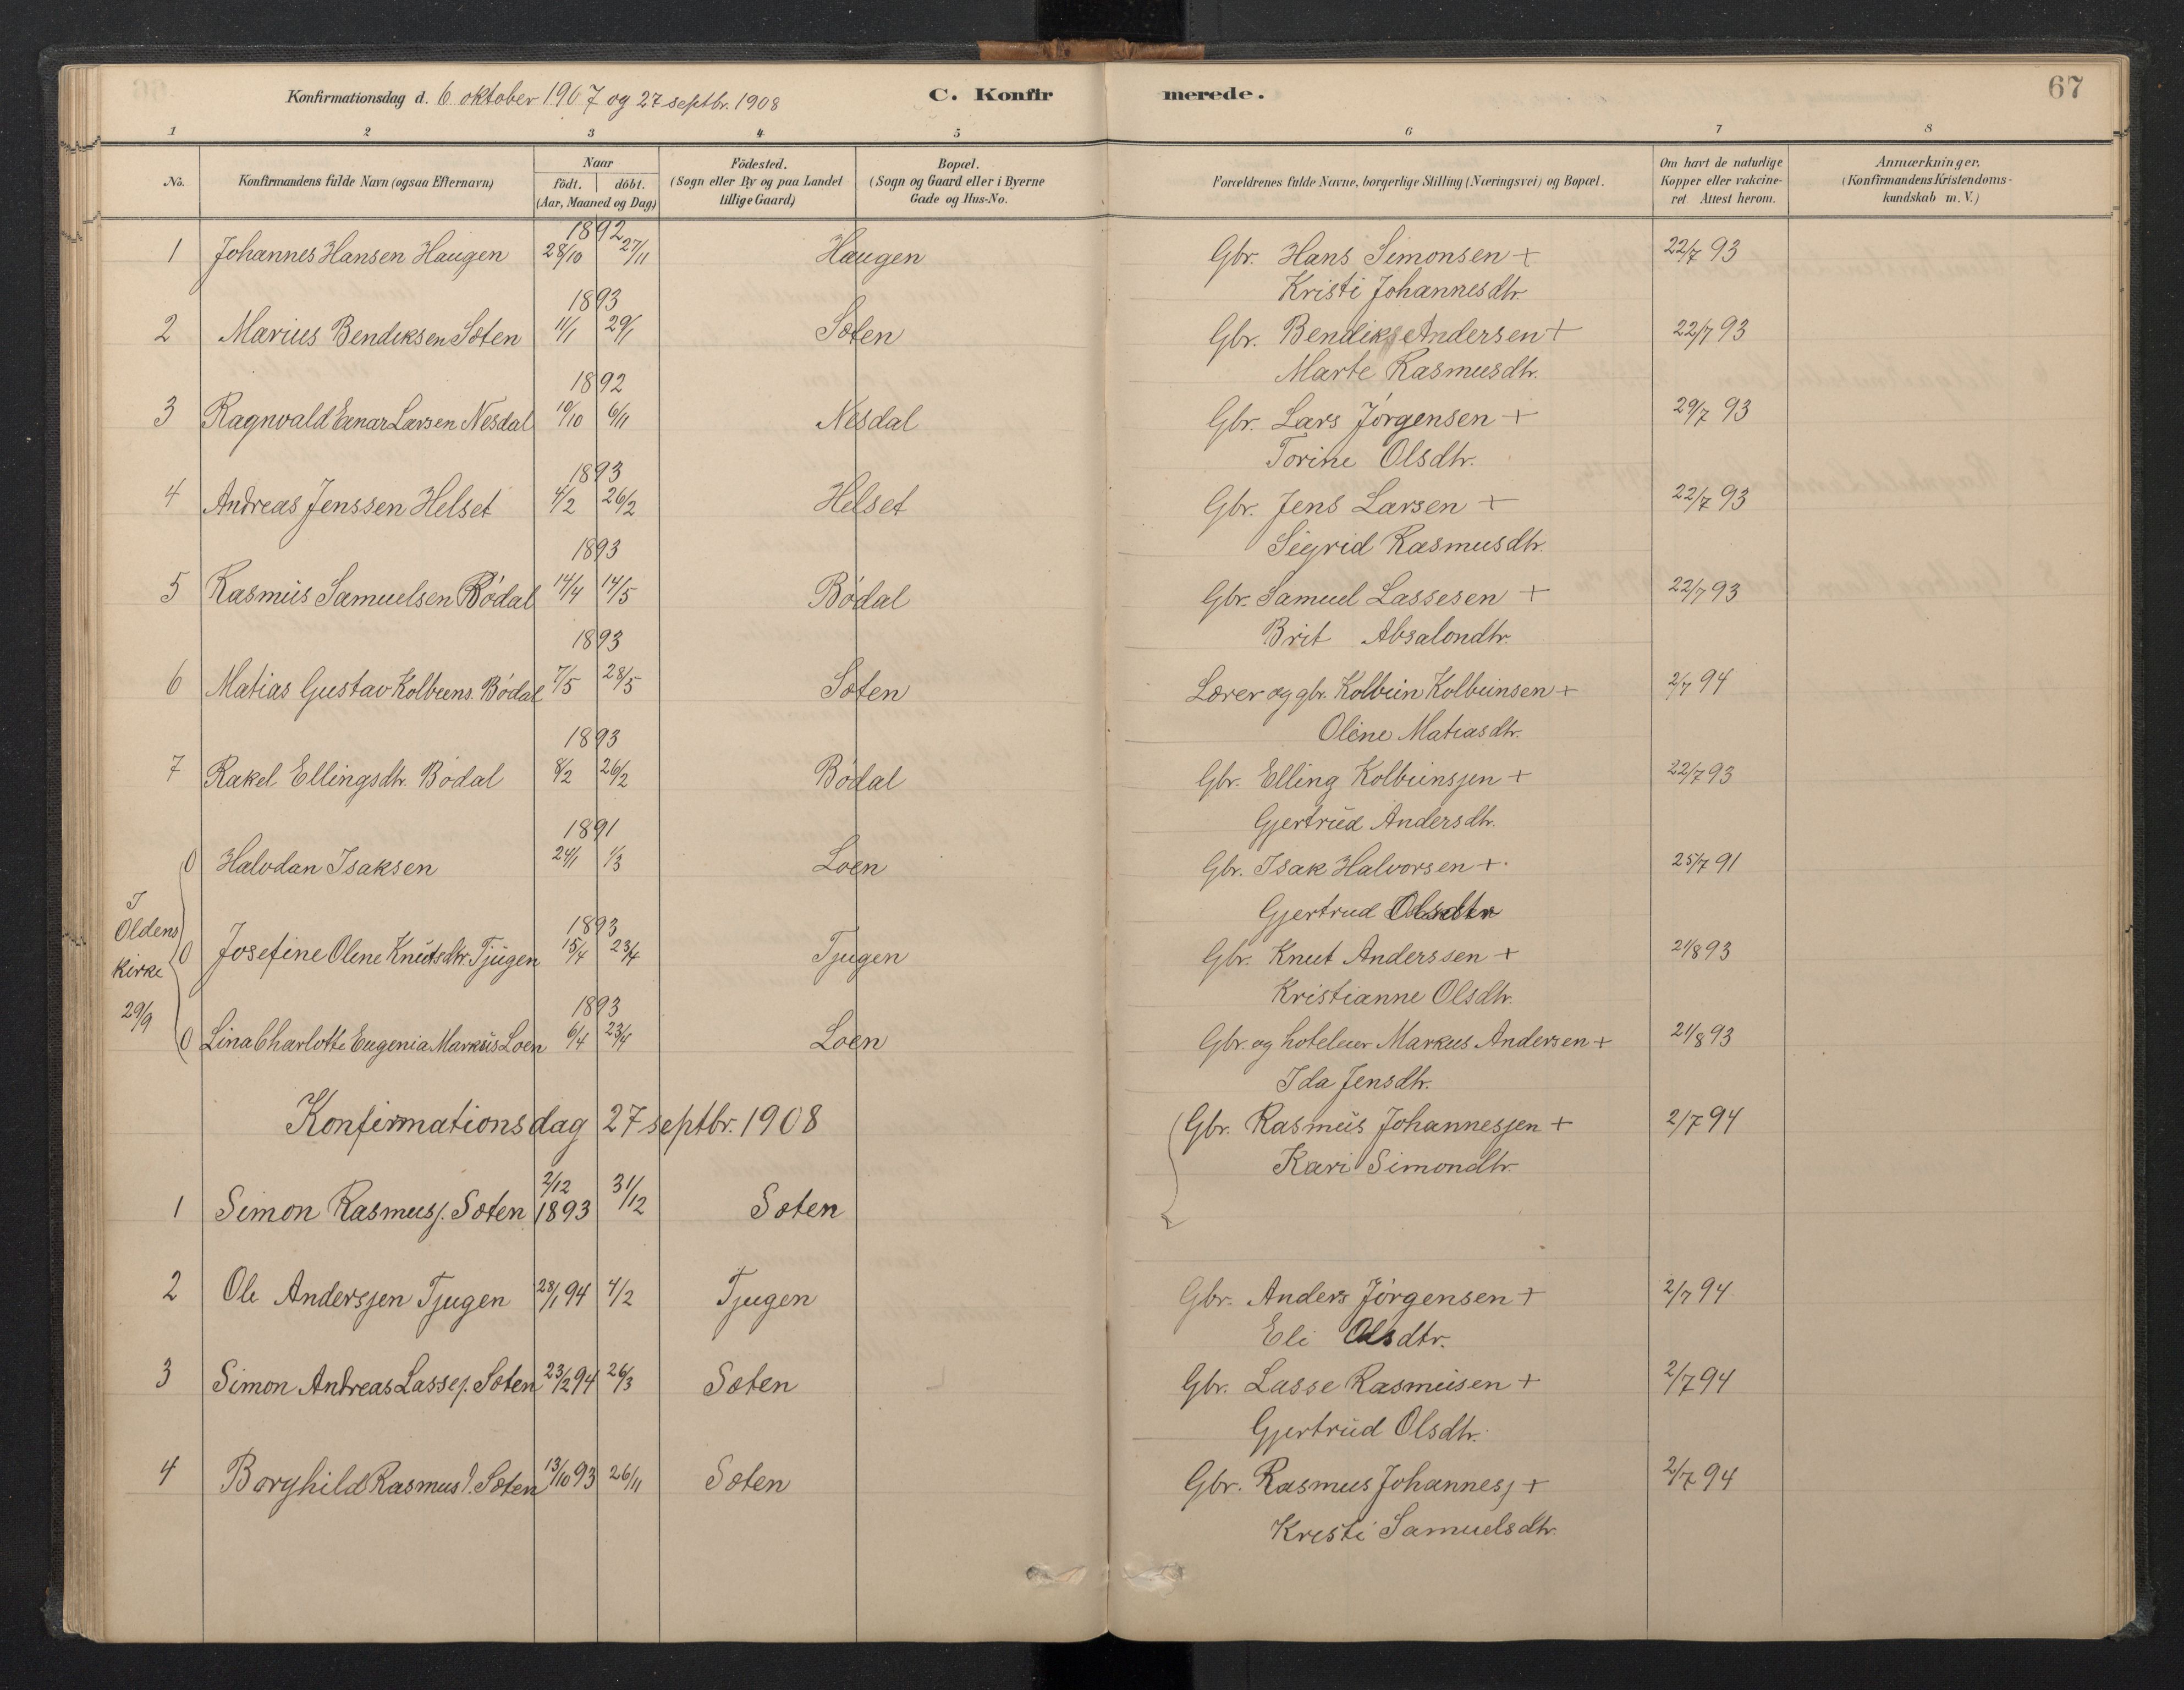 Konfirmationsdag d. 6 oktober 1907 og 27 septbr. 1908 C. Konfirmerede. 67
1 2 3 4 5 6 7 8
No. Konfirmandens fulde Navn (ogsaa Efternavn) Naar födt. döbt. (Aar, Maaned og Dag) Födested. (Sogn eller By og paa Landet tillige Gaard) Bopæl. (Sogn og Gaard eller i Byerne Gade og Hus-No. Forældrenes fulde Navne, borgerlige Stilling (Næringsvei) og Bopæl. Om havt de naturlige Kopper eller vakcineret. Attest herom. Anmærkninger. (Konfirmandens Kristendomskundskab m. V.)
1892
1 Johannes Hansen Haugen 28/10 27/11 Haugen Gbr. Hans Simonsen + 22/7 93
Kristi Johannesdtr.
1893
2 Marius Bendiksen Sæten 11/1 29/1 Sæten Gbr. Bendik Andersen + 22/7 93
Marte Rasmusdtr.
1892
3 Ragnvald Einar Larsen Nesdal 10/10 6/11 Nesdal Gbr. Lars Jörgensen + 29/7 93
Torine Olsdtr.
1893
4 Andreas Jenssen Helset 4/2 26/2 Helset Gbr. Jens Larsen + 22/7 93
Sigrid Rasmusdtr.
1893
5 Rasmus Samuelsen Bödal 14/4 14/5 Bödal Gbr. Samuel Lassesen + 22/7 93
Brit Absalondtr.
1893
6 Matias Gustav Kolbeins. Bödal 7/5 28/5 Sæten Lærer og gbr. Kolbein Kolbeinsen + 2/7 94
Oline Matiasdtr.
1893
7 Rakel Ellingsdtr. Bödal 8/2 26/2 Bödal Gbr. Elling Kolbeinssen + 22/7 93
Gjertrud Andersdtr.
1891
0 Halvdan Isaksen 24/1 1/3 Loen Gbr. Isak Halvorsen + 25/7 91
Gjertrud Olsdtr
I Oldens Kirke 29/9
1893
0 Josefine Oline Knutsdtr. Tjugen 15/4 23/4 Tjugen Gbr. Knut Anderssen + 21/8 93
Kristianne Olsdtr.
1893
0 Lina Charlotte Eugenia Markus Loen 6/4 23/4 Loen Gbr. og hoteleier Markus Andersen + 21/8 93
Ida Jensdtr.
Konfirmationsdag 27 septbr. 1908 Gbr. Rasmus Johannessen + 2/7 94
Kari Simondtr
1 Simon Rasmuss. Sæten 2/12 1893 31/12 Sæten
2 Ole Anderssen Tjugen 28/1 94 4/2 Tjugen Gbr. Anders Jörgensen + 2/7 94
Eli Olsdtr.
3 Simon Andreas Lasses. Sæten 23/2 94 26/3 Sæten Gbr. Lasse Rasmusen + 2/7 94
Gjertrud Olsdtr.
4 Borghild Rasmusd. Sæten 13/10 93 26/11 Sæten Gbr. Rasmus Johanness + 2/7 94
Kristi Samuelsdtr.